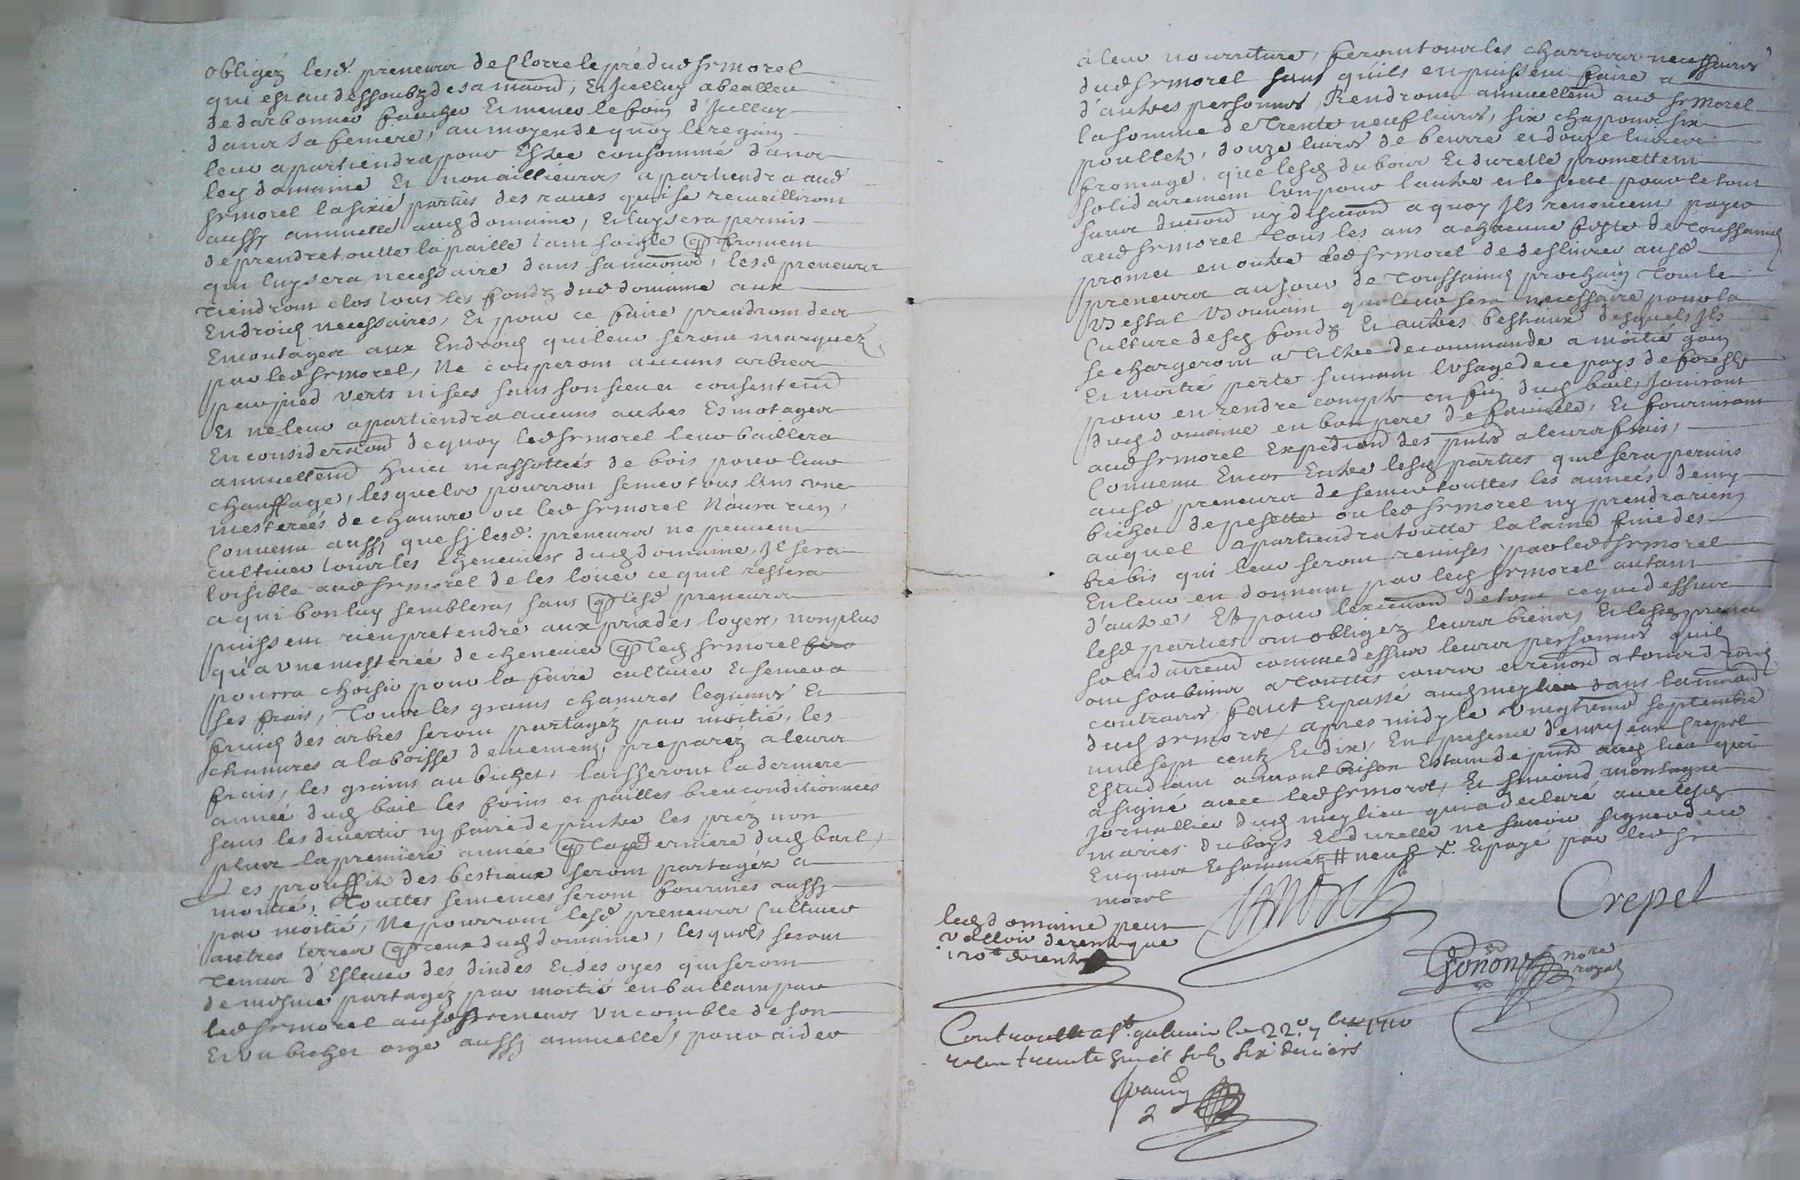 obligéz lesd. preneurs de Clorre le pré dud sr morel
qui est au dessoubz de sa maond, Et Jcelluy abealler
dedarbonner faucher Et mener le foin d'Jcelluy
dans sa feniere, au moyen de quoy le regain
leur apartiendra pour Estre consommé dans
led domaine Et non ailleurs apartiendra aud
sr morel la sixie partie des raves qui se recueilliront
aussy annuelle aud domaine, Et luy sera permis
de prendre toutte la paille tant soigle que froment
qui luy sera necessaire dans sa maond, lesd preneurs
tiendront clos tous les fondz dud domaine aux
Endroits necessaires, Et pour ce faire prendront des
Emontages aux Endroits qui leur seront marquéz
par led sr morel, Ne couperont aucuns arbres
par pied verts ni secs sans son sceu et consentemd
Et ne leur apartiendra aucuns autres Esmotages
En considerãond de quoy led sr morel leur baillera
annuellemd huict massottées de bois pour leur
chauffage, lesquels pourront semer tous les ans une
mesterées de chanvre ou led sr morel N'aura rien,
Convenu aussy que sy lesd. preneurs ne peuvent
cultiver tous les cheneviers dud domaine, Jl sera
loisible aud sr morel de les louer ce qu'il restera
a qui bon luy semblera sans que lesd preneurs
puissent rien pretendre aux prix des loyers, non plus
qu'a une mesterée de chenevier que led sr morel
pourra choisir pour la faire cultiver Et semer a
ses frais, Tous les grains chanvres legumes Et
fruits des arbres seront partagéz par moitié, les
chanvres a la boisse d'evement, preparez a leurs
frais, les grains au bichet, laisseront la derniere
année dud bail les foins et pailles bien conditionnées
sans les divertir ny faire depaitre les préz non
plus la premiere année que la derniere dud bail,
Les prouffits des bestiaux seront partagéz a
moitié, Touttes semences seront fournies aussy
par moitié, Ne pourront lesd preneurs Cultiver
autres terres que ceux dud domaine, lesquels seront
Tenus d'Eslever des dindes Et des oyes qui seront
de mesme partagéz par moitié en baillant par
led sr morel ausd preneurs un comble de son
Et un bichet orge aussy annuelle, pour aider
a leur nourriture, feront tous les charrois necessaires
dud sr morel sans qu'ils en puissent faire a
d'autres personnes, Rendront annuellemd aud sr morel
la somme de Trente neuf livres, six chapons six
poullets, douze livres de beurre et douze livres
fromage, que lesd dubour Et durelle promettent
solidairement l'un pour l'autre et le seul pour le tout
sans division ny discution a quoy Jls renoncent payer
aud sr morel tous les ans a chacune feste de Toussainct
promet en outre led sr morel de deslivrer ausd
preneurs au jour de Toussainct prochain tout le
bestal bouvain qui leur sera necessaire pour la
Culture desd fondz Et autres bestiaux desquels Jls
se chargeront a tiltre de commande a moitié gain
Et moitié perte suivant l'usage de ce pays de forest
pour en rendre compte en fin dud bail, Jouiront
dud domaine en bon pere de famille, Et fourniront
aud sr morel Expediond des pntes a leurs frais,
Convenu Encor Entre lesd parties qu'il sera permis
ausd preneurs de semer touttes les années demy
bichet de pesette ou led sr morel ny prendra rien
auquel apartiendra toutte la laine fine des
brebis qui leur seront remises par led sr morel
En leur en donnant par led sr morel autant
d'autre, Et pour l'exeuond de tout ce que dessus
lesd parties ont obligéz leurs biens, Et lesd preneurs
solidairemd comme dessus leurs personnes qu'ils
ont soubmis a touttes cours et renond a tous droits
contraires, faict Et passé aud meylieu dans la maond
dud sr morel, apres midy le vingtieme septembre
mil sept centz Et dix, En presence d'emij Jean Crepet
Estudiant a montbrison Estant de pnt aud lieu qui
a signé avec led sr morel, Et simond montagne
Jornallier dud meylieu qui a declaré avec lesd
mariés duboys Et durelle ne savoir signer de ce
Enquis Et sommez # neuf x. Et payé par led sr
morel
led domaine peut
valloir de rente que
170tt de rente
Smorel
Crepet
Gonon nore
royal
Controllé a st. galmier le 22e 7bre 1710
recu trente huict sols six deniers
2